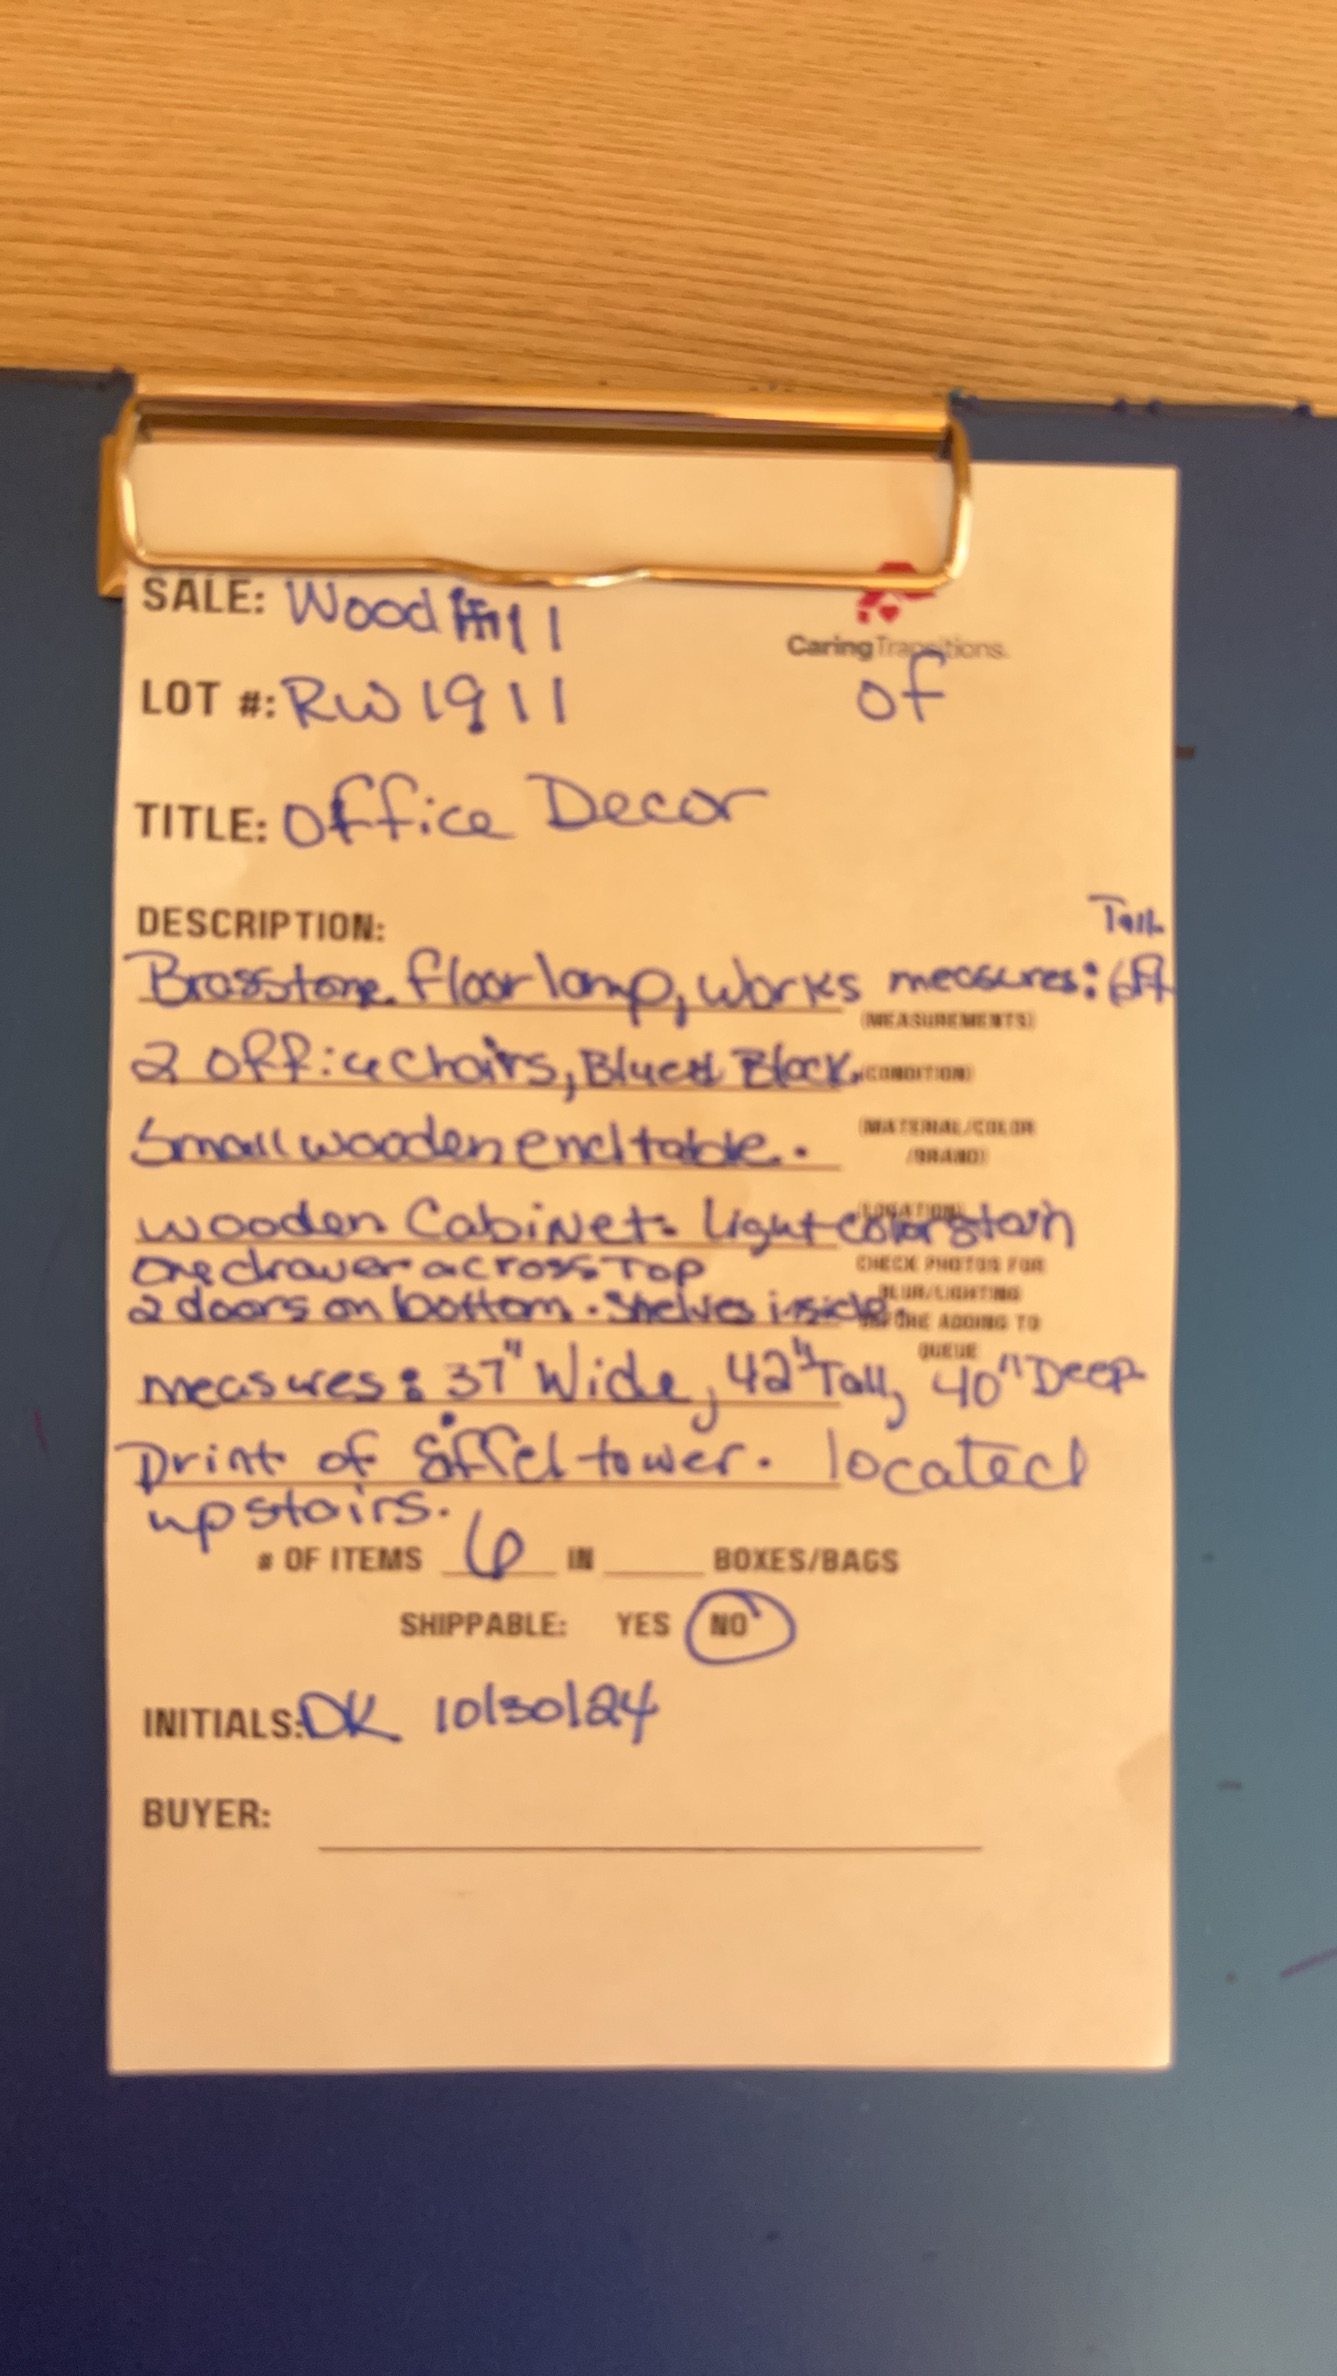 SALE: Wood Hill
CaringTransitions.
LOT #: RW1911
of
TITLE: Office Decor
DESCRIPTION:
Tall.
Brasstone floor lamp, works measures: 6ft
(MEASUREMENTS)
2 office chairs, Blue & Black,
(CONDITION)
Small wooden end table.
(MATERIAL/COLOR
/BRAND)
wooden Cabinet: light color stain
(LOCATION)
One drawer across Top
CHECK PHOTOS FOR
BLUR/LIGHTING
2 doors on bottom. Shelves inside.
BEFORE ADDING TO
QUEUE
measures: 37" Wide, 42" Tall, 40" Deep
Print of Eiffel tower. located
upstairs.
# OF ITEMS 6 IN ____ BOXES/BAGS
SHIPPABLE: YES NO
INITIALS: DK 10/30/24
BUYER: